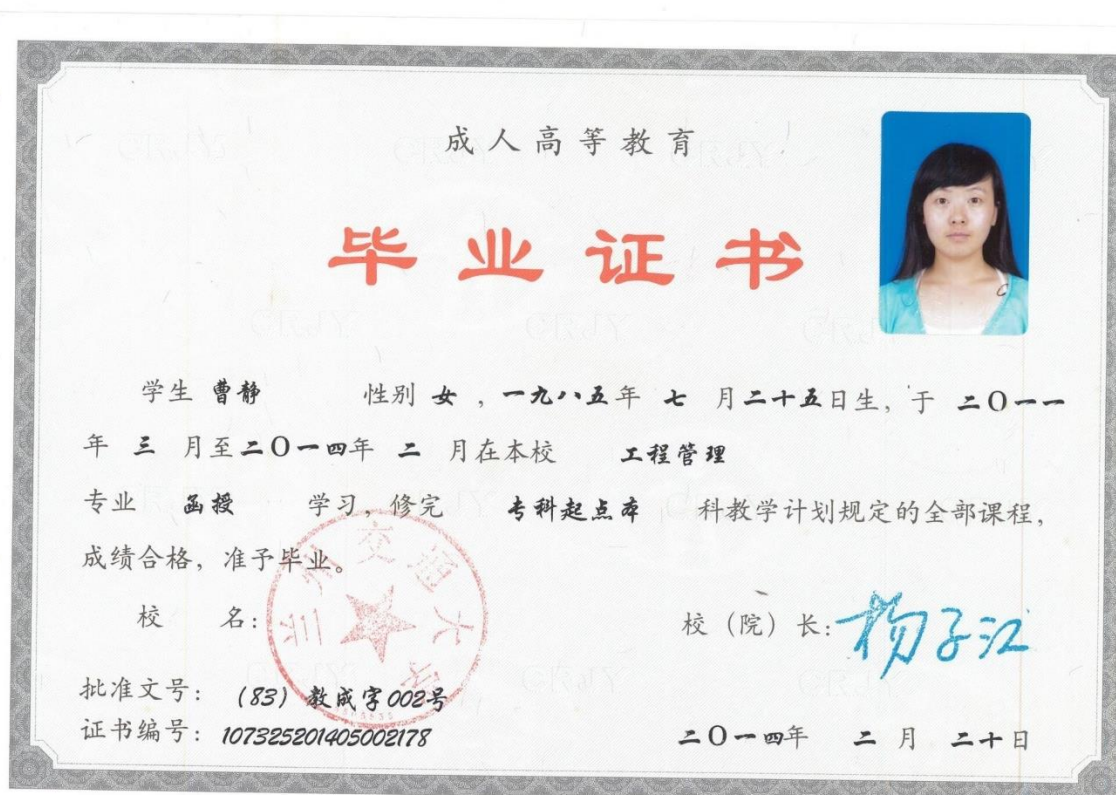 成人高等教育
毕业证书
学生 曹静 性别 女 ，一九八五年 七 月二十五日生，于 二〇一一
年 三 月至二〇一四年 二 月在本校 工程管理
专业 函授 学习，修完 专科起点本 科教学计划规定的全部课程，
成绩合格，准予毕业。
校 名： 兰州交通大学
校（院）长：杨子江
批准文号：（83）教成字002号
证书编号：107325201405002178
二〇一四年 二 月 二十日